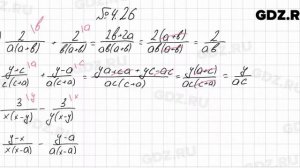 № 4.26
GDZ.RU
2/a(a+b) + 2/b(a+b) = 2b+2a/ab(a+b) = 2(a+b)/ab(a+b) = 2/ab
y+c/c(c+a) + y-a/a(c+a) = ya+ca+yc-ac/ac(c+a) = y(a+c)/ac(c+a) = y/ac
3/x(x-y) - 3/y(x-y)
y-x/x(x-a) - y-a/a(x-a)
GDZ.RU